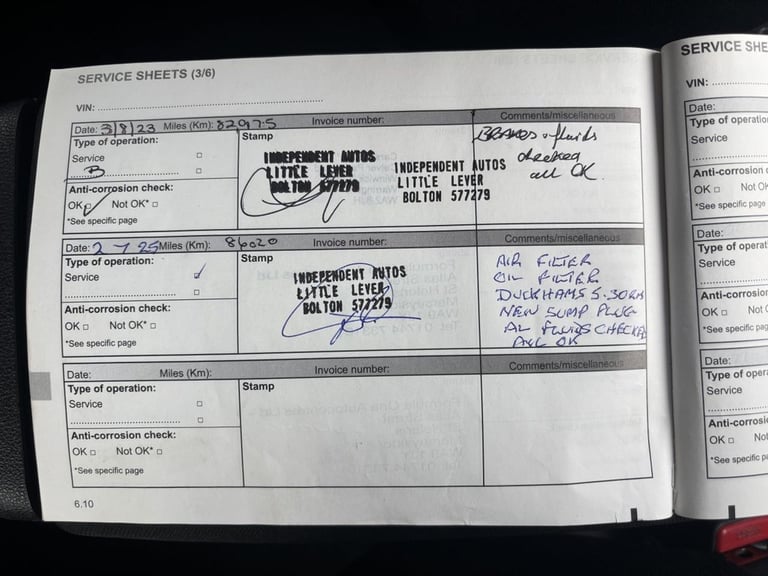 SERVICE SHEETS (3/6)
VIN:
Date: 3/8/23 Miles (Km): 82097.5 Invoice number: Comments/miscellaneous
Type of operation:
Service
B
Anti-corrosion check:
OK Not OK*
*See specific page
Stamp
INDEPENDENT AUTOS
LITTLE LEVER
BOLTON 577279
INDEPENDENT AUTOS
LITTLE LEVER
BOLTON 577279
& fluids
checked
all OK.
Date: 2 7 25 Miles (Km): 86020 Invoice number: Comments/miscellaneous
Type of operation:
Service
Anti-corrosion check:
OK Not OK*
*See specific page
Stamp
INDEPENDENT AUTOS
LITTLE LEVER
BOLTON 577279
AIR FILTER
OIL FILTER
DUCKHAMS 5.30
NEW SUMP PLUG
AL FLUIDS CHECKED
ALL OK
Date: Miles (Km): Invoice number: Comments/miscellaneous
Type of operation:
Service
Anti-corrosion check:
OK Not OK*
*See specific page
Stamp
6.10
SERVICE SHE
VIN:
Date:
Type of operatio
Service
Anti-corrosion c
OK Not OK
*See specific pa
Date:
Type of operat
Service
Anti-corrosion
OK Not O
*See specific p
Date:
Type of opera
Service
Anti-corrosio
OK Not
*See specific p